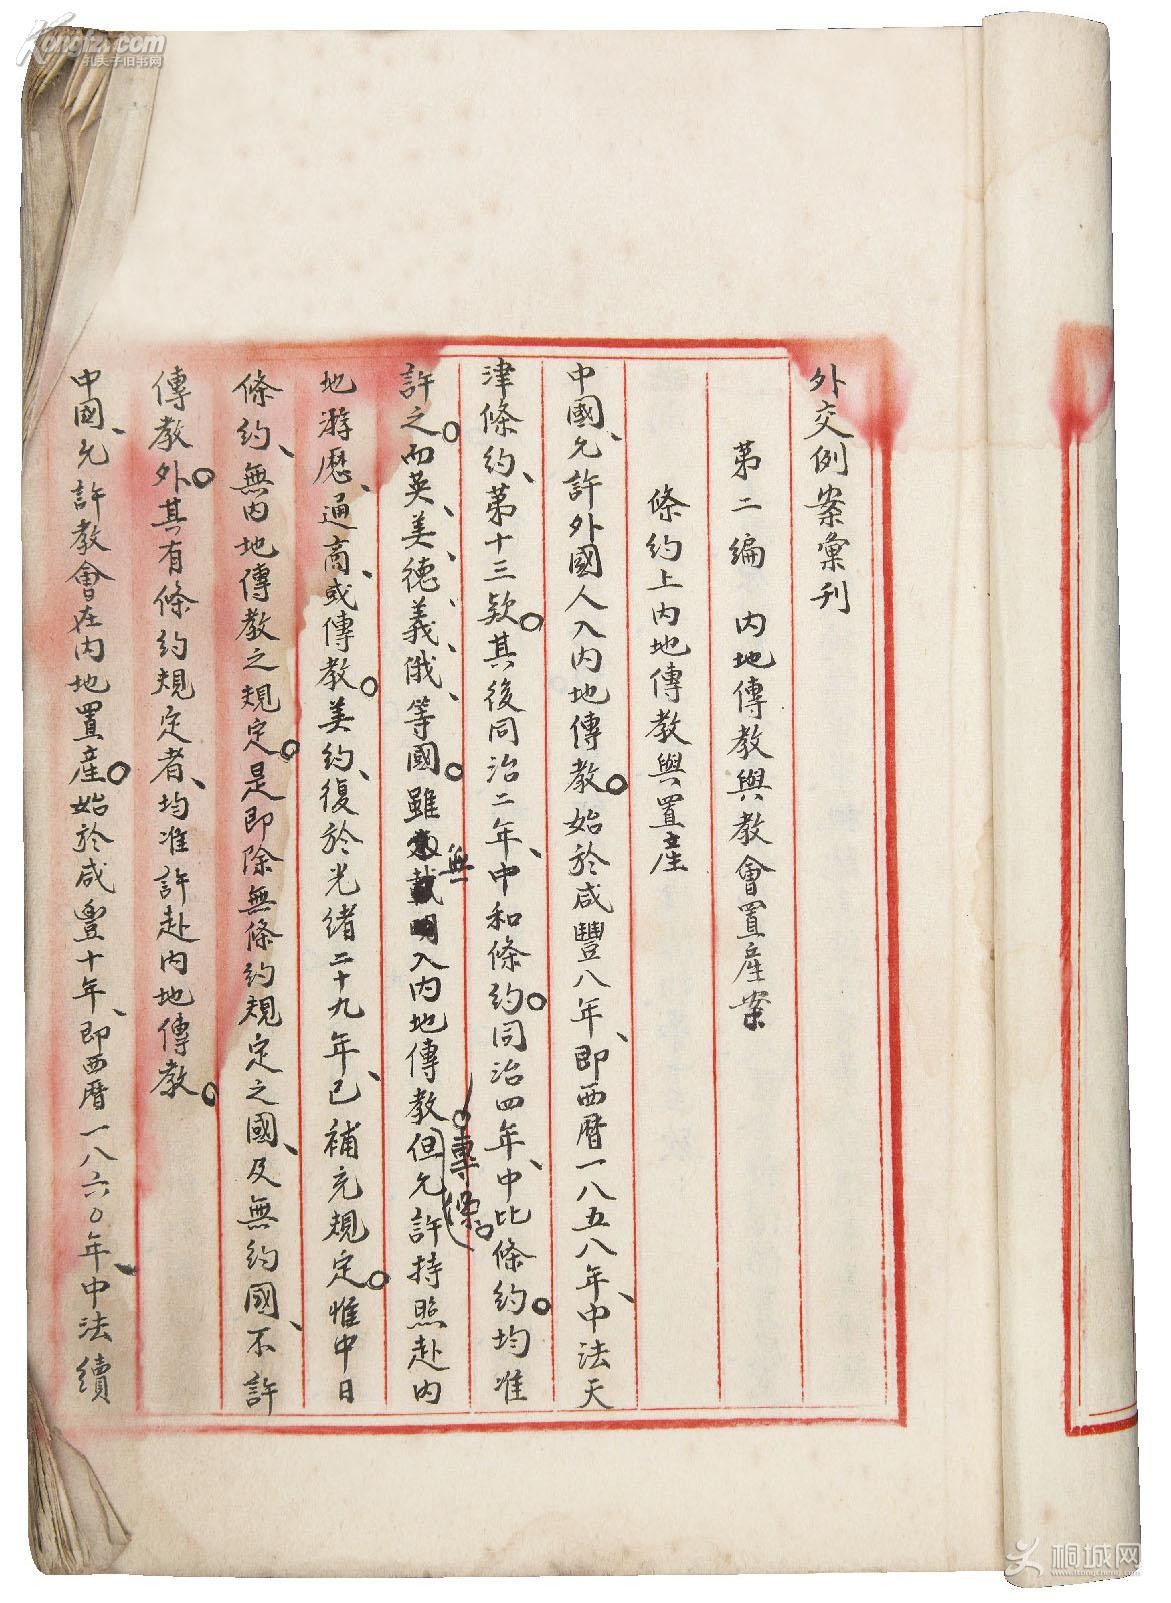 外交例案彙刊
第二編 內地傳教與教會置產案
條約上內地傳教與置產
中國、允許外國人入內地傳教。始於咸豐八年、即西曆一八五八年、中法天
津條約、第十三款。其後同治二年、中和條約。同治四年、中比條約。均准
許之。而英、美、德、義、俄、等國。雖無載明入內地傳教。但允許持照赴內
專條。
地游歷、通商、或傳教。美約、復於光緒二十九年、已補充規定。惟中日
條約、無內地傳教之規定。是即除無條約規定之國、及無約國、不許
傳教外。其有條約規定者、均准許赴內地傳教。
中國、允許教會在內地置產。始於咸豐十年、即西曆一八六〇年、中法續
Kongfz.com
孔夫子旧书网
桐城网
www.itongcheng.com